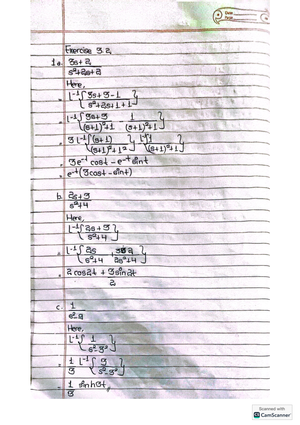 Date
Page
Exercise 3.2
1a. 3s+2
s²+2s+2
Here,
L⁻¹{3s+3-1
s²+2s+1+1}
= L⁻¹{3s+3 - 1
(s+1)²+1 (s+1)²+1}
= 3 L⁻¹{(s+1) L⁻¹{1
(s+1)²+1² (s+1)²+1}
= 3e⁻ᵗ cost - e⁻ᵗ sint
= e⁻ᵗ(3cost - sint)
b. 2s+3
s²+4
Here,
L⁻¹{2s+3
s²+4}
= L⁻¹{2s
s²+4 2s²+4}
= 2cos2t + 3sin2t
2
c. 1
s²-9
Here,
L⁻¹{1
s²-3²}
= 1 L⁻¹{3
3 s²-3²}
= 1 sinh3t
3
Scanned with
CS CamScanner